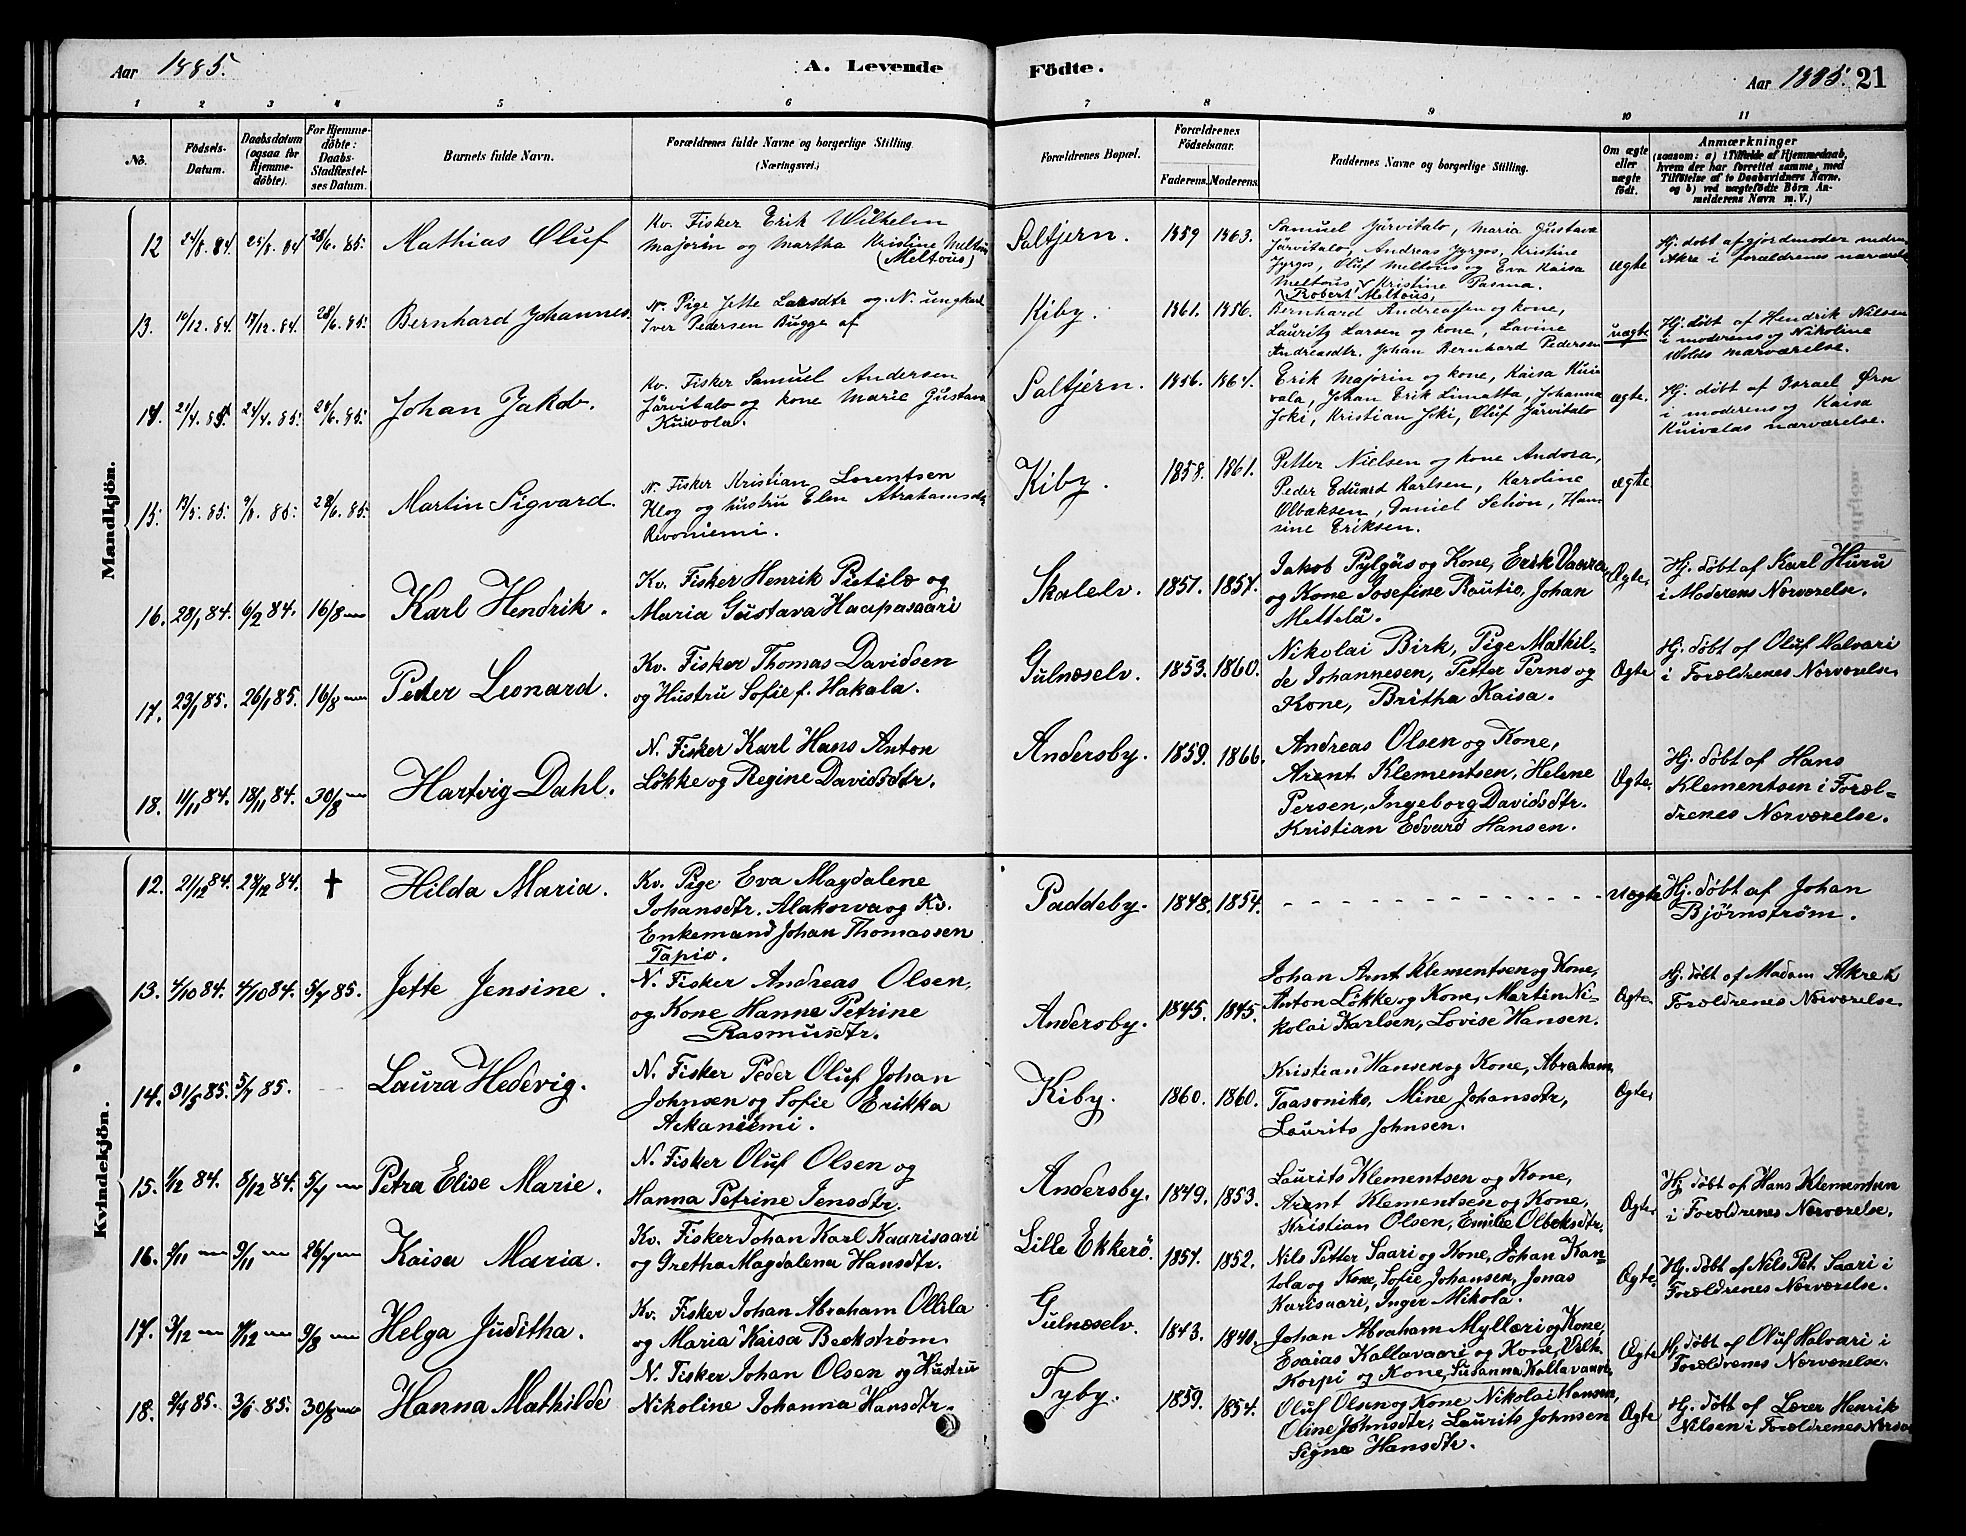 Aar 1885.
A. Levende
Födte.
Aar 1885. 21
1 2 3 4 5 6 7 8 9 10 11
No.
Födsels-
Datum.
Daabsdatum
(ogsaa for
Hjemme-
døbte).
For Hjemme-
döbte:
Daabs-
Stadfæstel-
ses Datum.
Barnets fulde Navn.
Forældrenes fulde Navne og borgerlige Stilling.
(Næringsvei.)
Forældrenes Bopæl.
Forældrenes
Födselsaar.
Faderens. Moderens.
Faddernes Navne og borgerlige Stilling.
Om ægte
eller
uægte
född.
Anmærkninger
(saasom: a) i Tilfælde af Hjemmedaab,
hvem der har forrettet samme, med
Tilföielse af to Daabsvidners Navne,
og b) ved uægtefödte Börn An-
melderens Navn m. V.)
Mandkjön.
12 24/8. 84. 25/8. 84 28/6. 85. Mathias Oluf
Kv. Fisker Erik Wilhelm
Majorin og Martha Kristine Meltous
(Meltous)
Saltjern. 1859 1863.
Samuel Järvitalo, Maria Gustava
Järvitalo Andreas Jyrgos, Kristine
Jyrgos, Oluf Meltous og Eva Kaisa
Meltous Kristine Pasma.
Robert Meltous,
ægte
Hj. døbt af gjordmoder
Akre i forældrenes nærværelse
13. 10/12. 84. 17/12. 84. 28/6. 85. Bernhard Johannes.
N. Pige Jette Larsdtr og N. ungkarl
Iver Pedersen Bugge af
Kiby. 1861. 1856.
Bernhard Andreassen og kone,
Lauritz Larsen og kone, Lavine
Andreasdtr. Johan Bernhard Pedersen
uægte
Hj. døbt af Hendrik Nilsen
i moderens og Nikoline
Wolds nærværelse.
14. 21/4. 85. 24/4. 85. 28/6. 85. Johan Jakob.
Kv. Fisker Samuel Andersen
Järvitalo og kone Marie Gustava
Kuivola.
Saltjern. 1856. 1864.
Erik Majorin og kone, Kaisa Kui
vala, Johan Erik Limatta, Johanna
Joki, Kristian Joki, Oluf Järvitalo
ægte.
Hj. døbt af Israel Ørn
i moderens og Kaisa
Kuivalas nærværelse.
15. 13/5. 85. 85. 28/6. 85. Martin Sigvard.
N. Fisker Kristian Lorentsen
Klog og hustru Elen Abrahamsdtr
Rivoniemi.
Kiby. 1858. 1861.
Petter Nielsen og kone Andora,
Peder Eduard Karlsen, Karoline
Olbaksen, Daniel Schön, Han
sine Eriksen.
ægte
16. 28/1 84. 6/2 84. 16/8 — Karl Hendrik.
Kv. Fisker Henrik Pietilo og
Maria Gustava Haapasaari
Skalelv. 1851. 1854.
Jakob Pylgös og Kone, Erik Vaara
og Kone Josefine Rautio, Johan
Mettelä.
Ægte.
Hj. døbt af Karl Huru
i Moderens Nærværelse.
17. 23/1 85. 26/1 85. 16/8 — Peder Leonard.
Kv. Fisker Thomas Davidsen
og Hustru Sofie f. Hakala.
Gulnæselv. 1853. 1860.
Nikolai Birk, Pige Mathil-
de Johannesen, Petter Perno og
Kone, Britha Kaisa.
Ægte
Hj. døbt af Oluf Halvari
i Forældrenes Nærværelse.
18. 11/11 84. 18/11 84. 30/8 — Hartvig Dahl.
N. Fisker Karl Hans Anton
Løkke og Regine Davidsdtr.
Andersby. 1859. 1866.
Andreas Olsen og Kone,
Arent Klementsen, Helene
Persen, Ingeborg Davidsdtr.
Kristian Edvard Hansen.
Ægte.
Hj. døbt af Hans
Klementsen i Foræl-
drenes Nærværelse.
Kvindekjön.
12. 21/12 84. 28/12 84. † Hilda Maria.
Kv. Pige Eva Magdalene
Johansdtr. Alakorva og Kv.
Enkemand Johan Thomassen
Tapio.
Paddeby. 1848. 1854.
Uægte
Hj. døbt af Johan
Bjørnstrøm.
13. 4/10 84. 4/10 84. 5/7 85. Jette Jensine.
N. Fisker Andreas Olsen,
og Kone Hanne Petrine
Rasmusdtr.
Andersby. 1845. 1845.
Johan Arnt Klementsen og Kone,
Anton Løkke og Kone, Martin Ni-
kolai Karlsen, Lovise Hansen.
Ægte.
Hj. døbt af Madam Akre i
Forældrenes Nærværelse.
14. 31/5 85. 5/7 85. — Laura Hedevig.
N. Fisker Peder Oluf Johan
Johnsen og Sofie Erikka
Askaniemi.
Kiby. 1860. 1860.
Kristian Hansen og Kone, Abraham
Taasoniko, Mine Johansdtr,
Laurits Johnsen.
Ægte.
15. 1/12 84. 8/12 84. 5/7 — Petra Elise Marie.
N. Fisker Oluf Olsen og
Hanna Petrine Jensdtr.
Andersby. 1849. 1853.
Laurits Klementsen og Kone,
Arent Klementsen og Kone,
Kristian Olsen, Emilie Olbeksdtr.
Ægte.
Hj. døbt af Hans Klementsen
i Forældrenes Nærværelse.
16. 2/11 — 9/11 — 26/7 — Kaisa Maria.
Kv. Fisker Johan Karl Kaurisaari
og Gretha Magdalena Hansdtr.
Lille Ekkerö. 1851. 1852.
Nils Petter Saari og Kone, Johan Kan-
tola og Kone, Sofie Johansen, Jonas
Karisaari, Inger Mikola.
Ægte.
Hj. døbt af Nils Pet. Saari i
Forældrenes Nærværelse.
17. 3/12 — 7/12 — 9/8 — Helga Juditha.
Kv. Fisker Johan Abraham Ollila
og Maria Kaisa Beckstrøm
Gulnæselv. 1843. 1840.
Johan Abraham Myllæri og Kone,
Esaias Kallavaari og Kone,
Korpi og Kone, Susanna Kallavaara.
Ægte
Hj. døbt af Oluf Halvari i
Forældrenes Nærværelse.
18. 2/4 85. 3/6 85. 30/8 — Hanna Mathilde
N. Fisker Johan Olsen og Hustru
Nikoline Johanna Hansdtr.
Tyby. 1859. 1854.
Oluf Olsen og Kone Nikolai Hansen,
Oline Johnsdtr, Laurits Johnsen
Signe Hansdtr.
Ægte
Hj. døbt af Lærer Henrik
Nilsen i Forældrenes